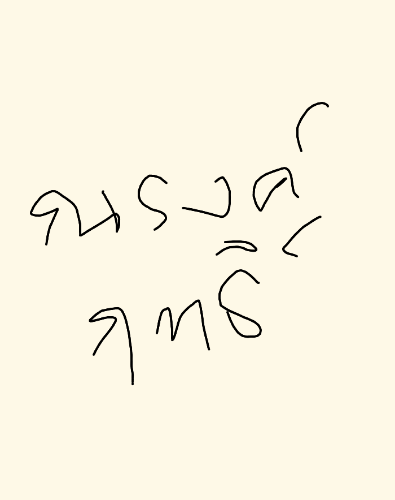 ณรงค์
ฤทธิ์